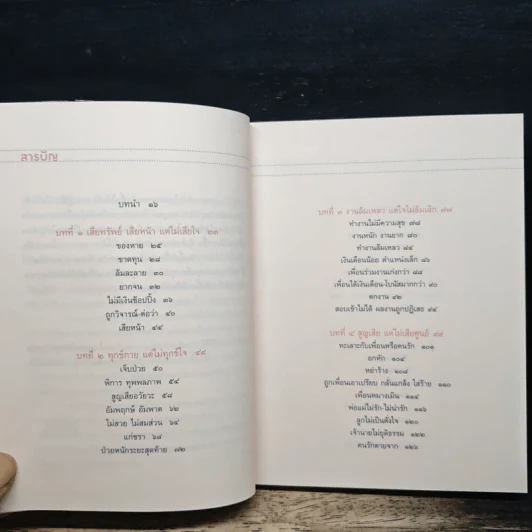 สารบัญ
บทนำ ๑๖
บทที่ ๑ เสียทรัพย์ เสียหน้า แต่ไม่เสียใจ ๒๓
ของหาย ๒๕
ขาดทุน ๒๘
ล้มละลาย ๓๐
ยากจน ๓๒
ไม่มีเงินช้อปปิ้ง ๓๖
ถูกวิจารณ์-ต่อว่า ๔๐
เสียหน้า ๔๔
บทที่ ๒ ทุกข์กาย แต่ไม่ทุกข์ใจ ๔๙
เจ็บป่วย ๕๐
พิการ ทุพพลภาพ ๕๔
สูญเสียอวัยวะ ๕๘
อัมพฤกษ์ อัมพาต ๖๒
ไม่สวย ไม่สมส่วน ๖๔
แก่ชรา ๖๘
ป่วยหนักระยะสุดท้าย ๗๒
บทที่ ๓ งานล้มเหลว แต่ใจไม่ล้มเลิก ๗๗
ทำงานไม่มีความสุข ๗๘
งานหนัก งานยาก ๘๐
ทำงานล้มเหลว ๘๔
เงินเดือนน้อย ตำแหน่งเล็ก ๘๖
เพื่อนร่วมงานเก่งกว่า ๘๘
เพื่อนได้เงินเดือน-โบนัสมากกว่า ๙๐
ตกงาน ๙๒
สอบเข้าไม่ได้ ผลงานถูกปฏิเสธ ๙๔
บทที่ ๔ สูญเสีย แต่ไม่เสียศูนย์ ๙๙
ทะเลาะกับเพื่อนหรือคนรัก ๑๐๑
อกหัก ๑๐๔
หย่าร้าง ๑๐๘
ถูกเพื่อนเอาเปรียบ กลั่นแกล้ง ใส่ร้าย ๑๑๐
เพื่อนหมางเมิน ๑๑๔
พ่อแม่ไม่รัก-ไม่น่ารัก ๑๑๖
ลูกไม่เป็นดั่งใจ ๑๒๐
เจ้านายไม่ยุติธรรม ๑๒๒
คนรักตายจาก ๑๒๖